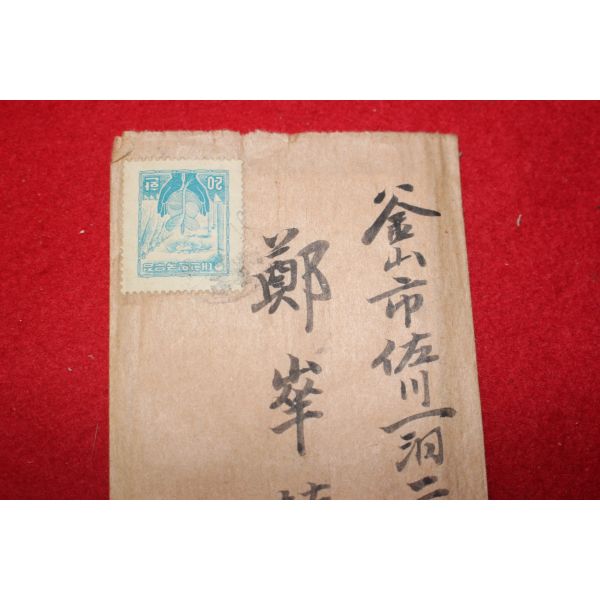 釜山市佐川一洞二
鄭峯
대한민국우표
20